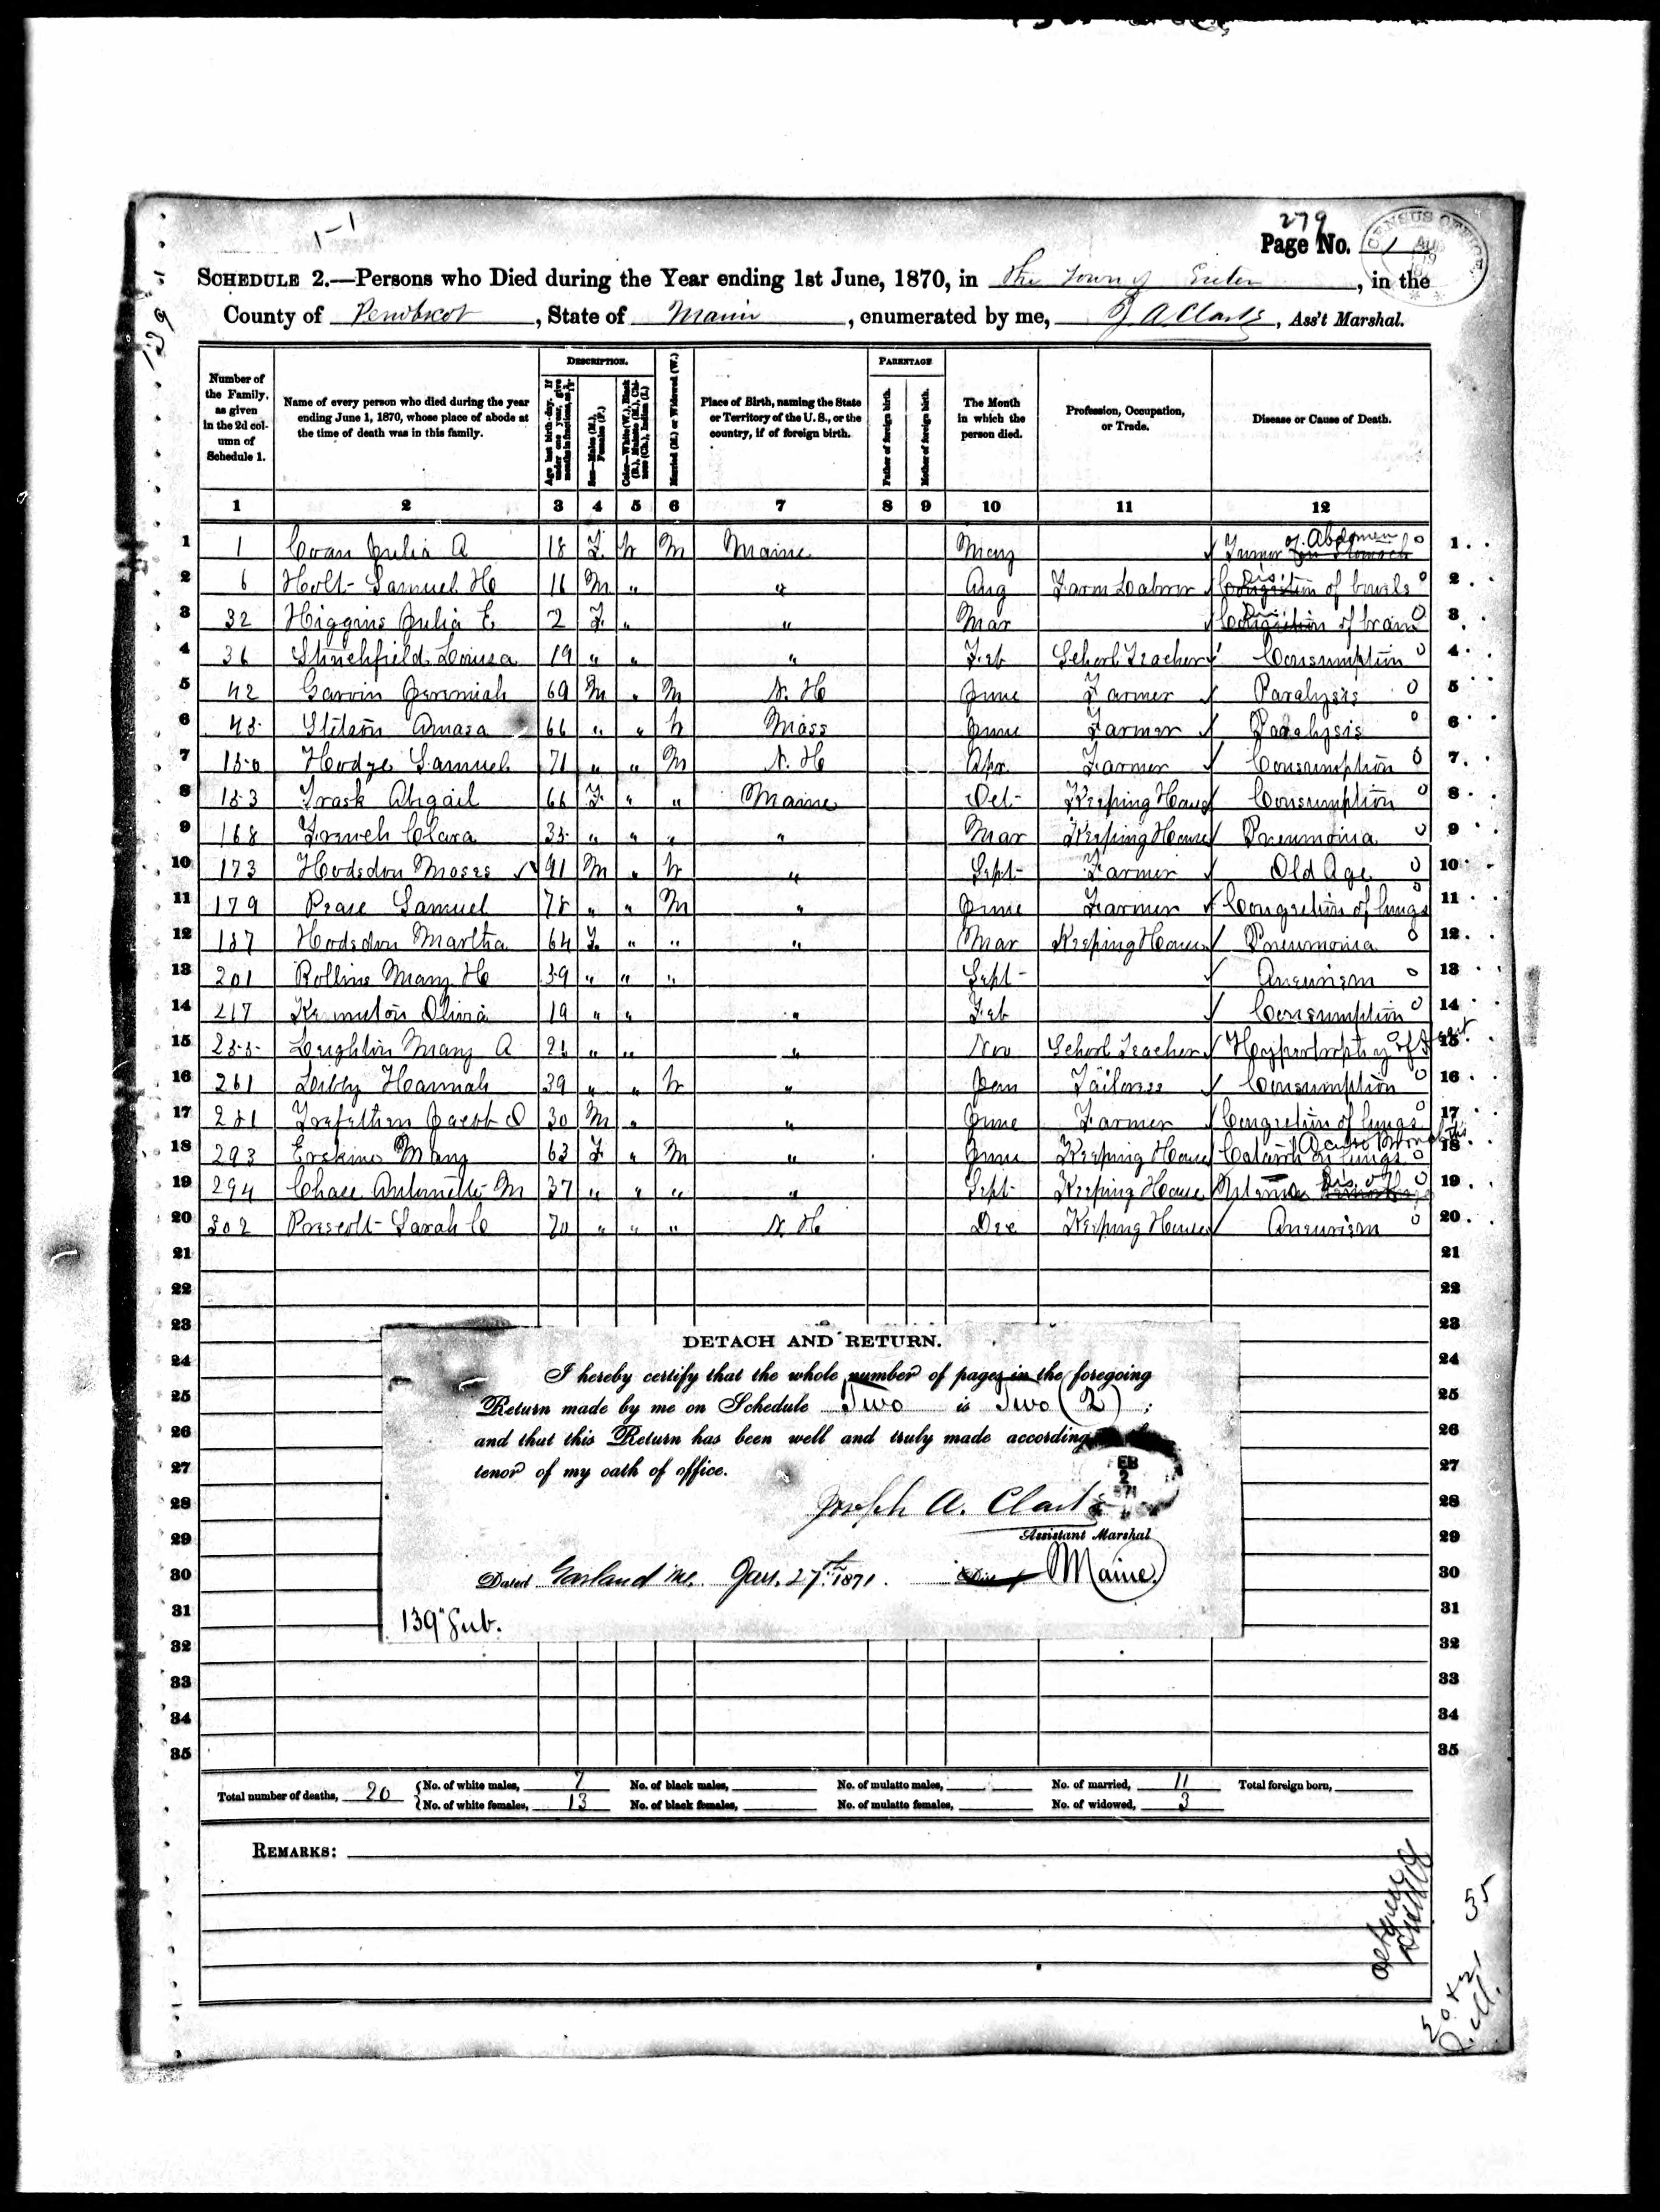 279
1-1
Page No. 1
SCHEDULE 2.—Persons who Died during the Year ending 1st June, 1870, in the Town of Exeter, in the
County of Penobscot, State of Maine, enumerated by me, J A Clark, Ass't Marshal.
139
Number of the Family, as given in the 2d column of Schedule 1.
Name of every person who died during the year ending June 1, 1870, whose place of abode at the time of death was in this family.
DESCRIPTION.
Age last birth-day. If under one year, give months in fractions, as
Sex—Males (M.), Females (F.)
Color—White (W.), Black (B.), Mulatto (M.), Chinese (Ch.), Indian (I.)
Married (M.) or Widowed (W.)
Place of Birth, naming the State or Territory of the U. S., or the country, if of foreign birth.
PARENTAGE
Father of foreign birth.
Mother of foreign birth.
The Month in which the person died.
Profession, Occupation, or Trade.
Disease or Cause of Death.
1 2 3 4 5 6 7 8 9 10 11 12
1 1 Coan Julia A 18 F W M Maine May Tumor of Abdomen 1
2 6 Holt Samuel H 16 M " " Aug Farm Laborer Dis. of bowels 2
3 32 Higgins Julia E 2 F " " Mar Dis. of brain 3
4 36 Stinchfield Louisa 19 " " " Feb School Teacher Consumption 4
5 42 Garvin Jeremiah 69 M " M N. H June Farmer Paralysis 5
6 45 Stetson Amasa 66 " " W Mass June Farmer Paralysis 6
7 150 Hodge Samuel 71 " " M N. H Apr Farmer Consumption 7
8 153 Trask Abigail 66 F " " Maine Oct Keeping House Consumption 8
9 168 French Clara 35 " " " " Mar Keeping House Pneumonia 9
10 173 Hodsdon Moses 91 M " W " Sept Farmer Old Age 10
11 179 Pease Samuel 78 " " M " June Farmer Congestion of lungs 11
12 187 Hodsdon Martha 64 F " " " Mar Keeping House Pneumonia 12
13 201 Rollins Mary H 39 " " " Sept Aneurism 13
14 217 Olivia 19 " " " Feb Consumption 14
15 255 Leighton Mary A " " " Nov School Teacher Hypertrophy of Heart 15
16 261 Libby Hannah 39 " " W " Jan Tailoress Consumption 16
17 281 Trefethen Jacob 30 M " " June Farmer Congestion of lungs 17
18 293 Erskine Mary 63 F " M " June Keeping House Catarrh on lungs Acute Bronchitis 18
19 294 Chase Antonette M 37 " " " " Sept Keeping House Dis. of 19
20 302 Prescott Sarah C 70 " " " N H Dec Keeping House Aneurism 20
21 21
22 22
23 23
24 24
25 25
26 26
27 27
28 28
29 29
30 30
31 31
32 32
33 33
34 34
35 35
DETACH AND RETURN.
I hereby certify that the whole number of pages in the foregoing
Return made by me on Schedule Two is Two (2);
and that this Return has been well and truly made according
tenor of my oath of office.
EB
2
871
Joseph A. Clark
Assistant Marshal
Dated Garland Me. Jan. 27th 1871. Maine.
139 Sub.
Total number of deaths, 20 { No. of white males, 7 No. of black males, No. of mulatto males, No. of married, 11 Total foreign born,
No. of white females, 13 No. of black females, No. of mulatto females, No. of widowed, 3
REMARKS:
55